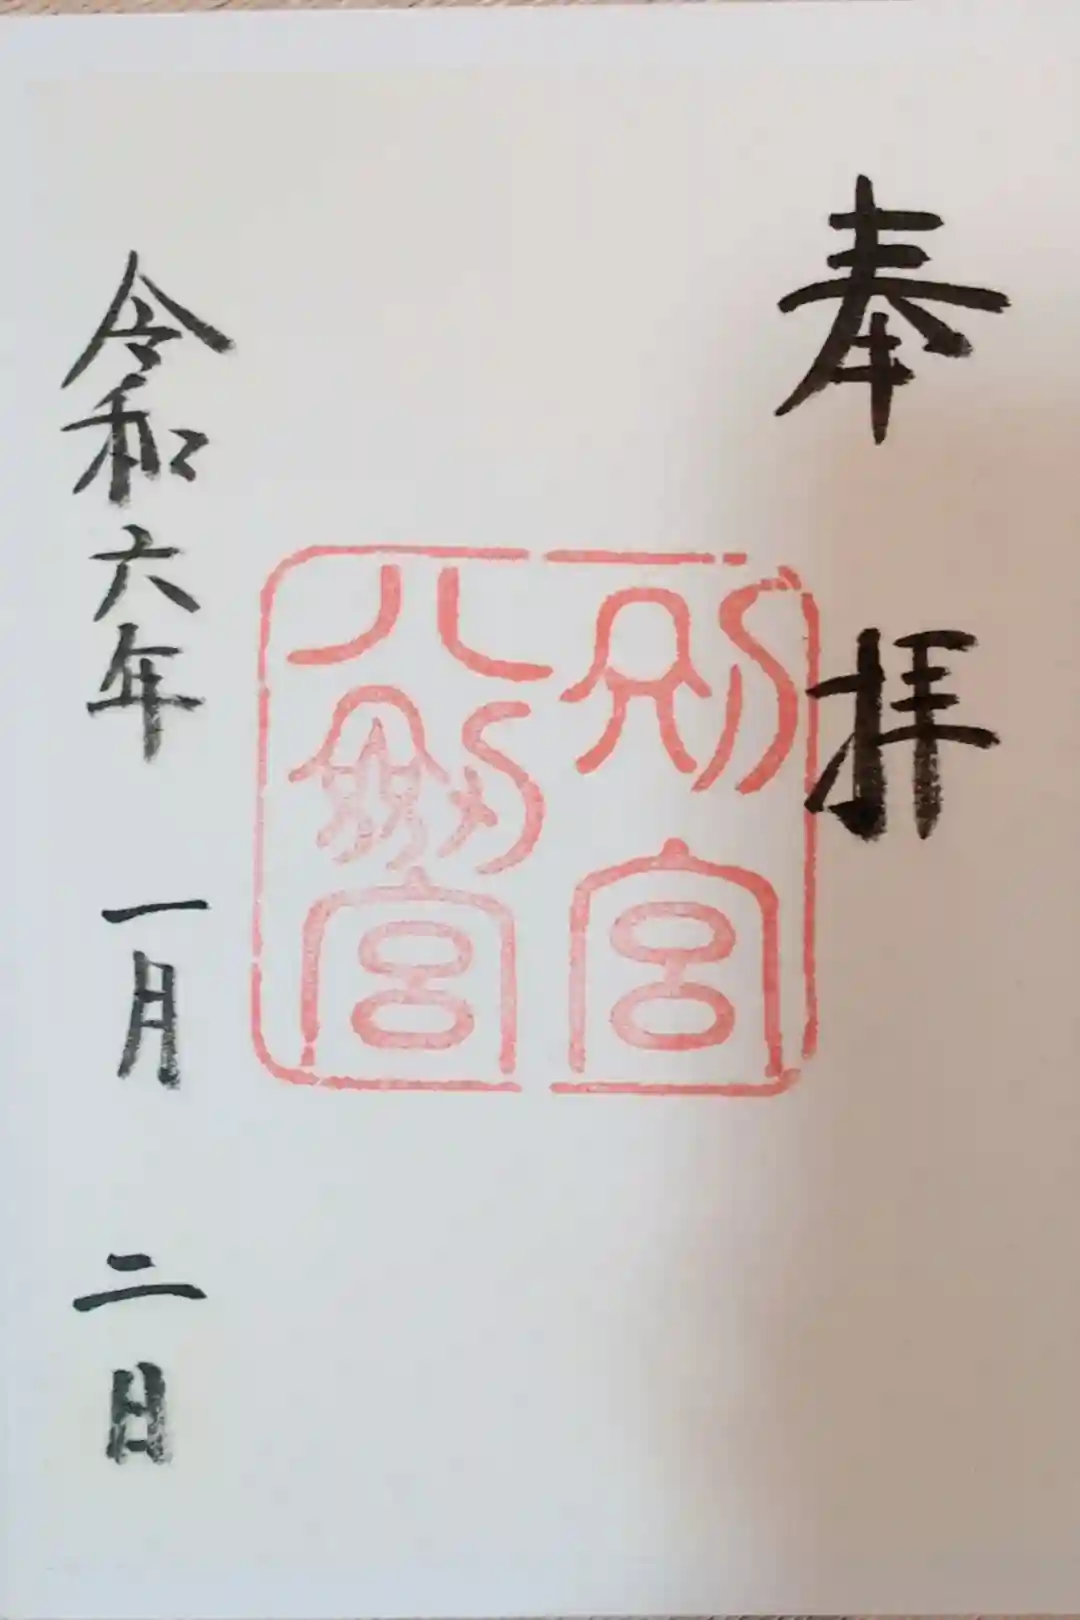 奉拝
別宮
八劔宮
令和六年一月二日